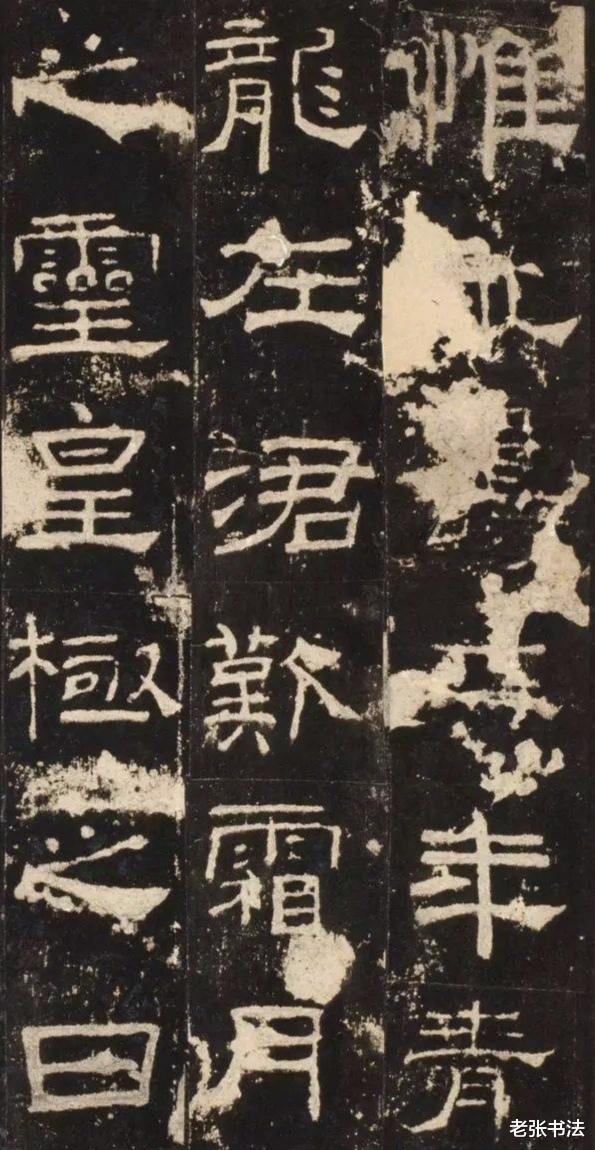 惟永壽二年青
龍在涒歎霜月
之靈皇極之日
老张书法